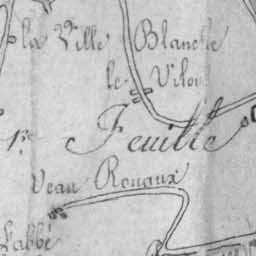 la Ville Blanche
le Vilou
1re Feuille
Veau Rouaux
Labbé